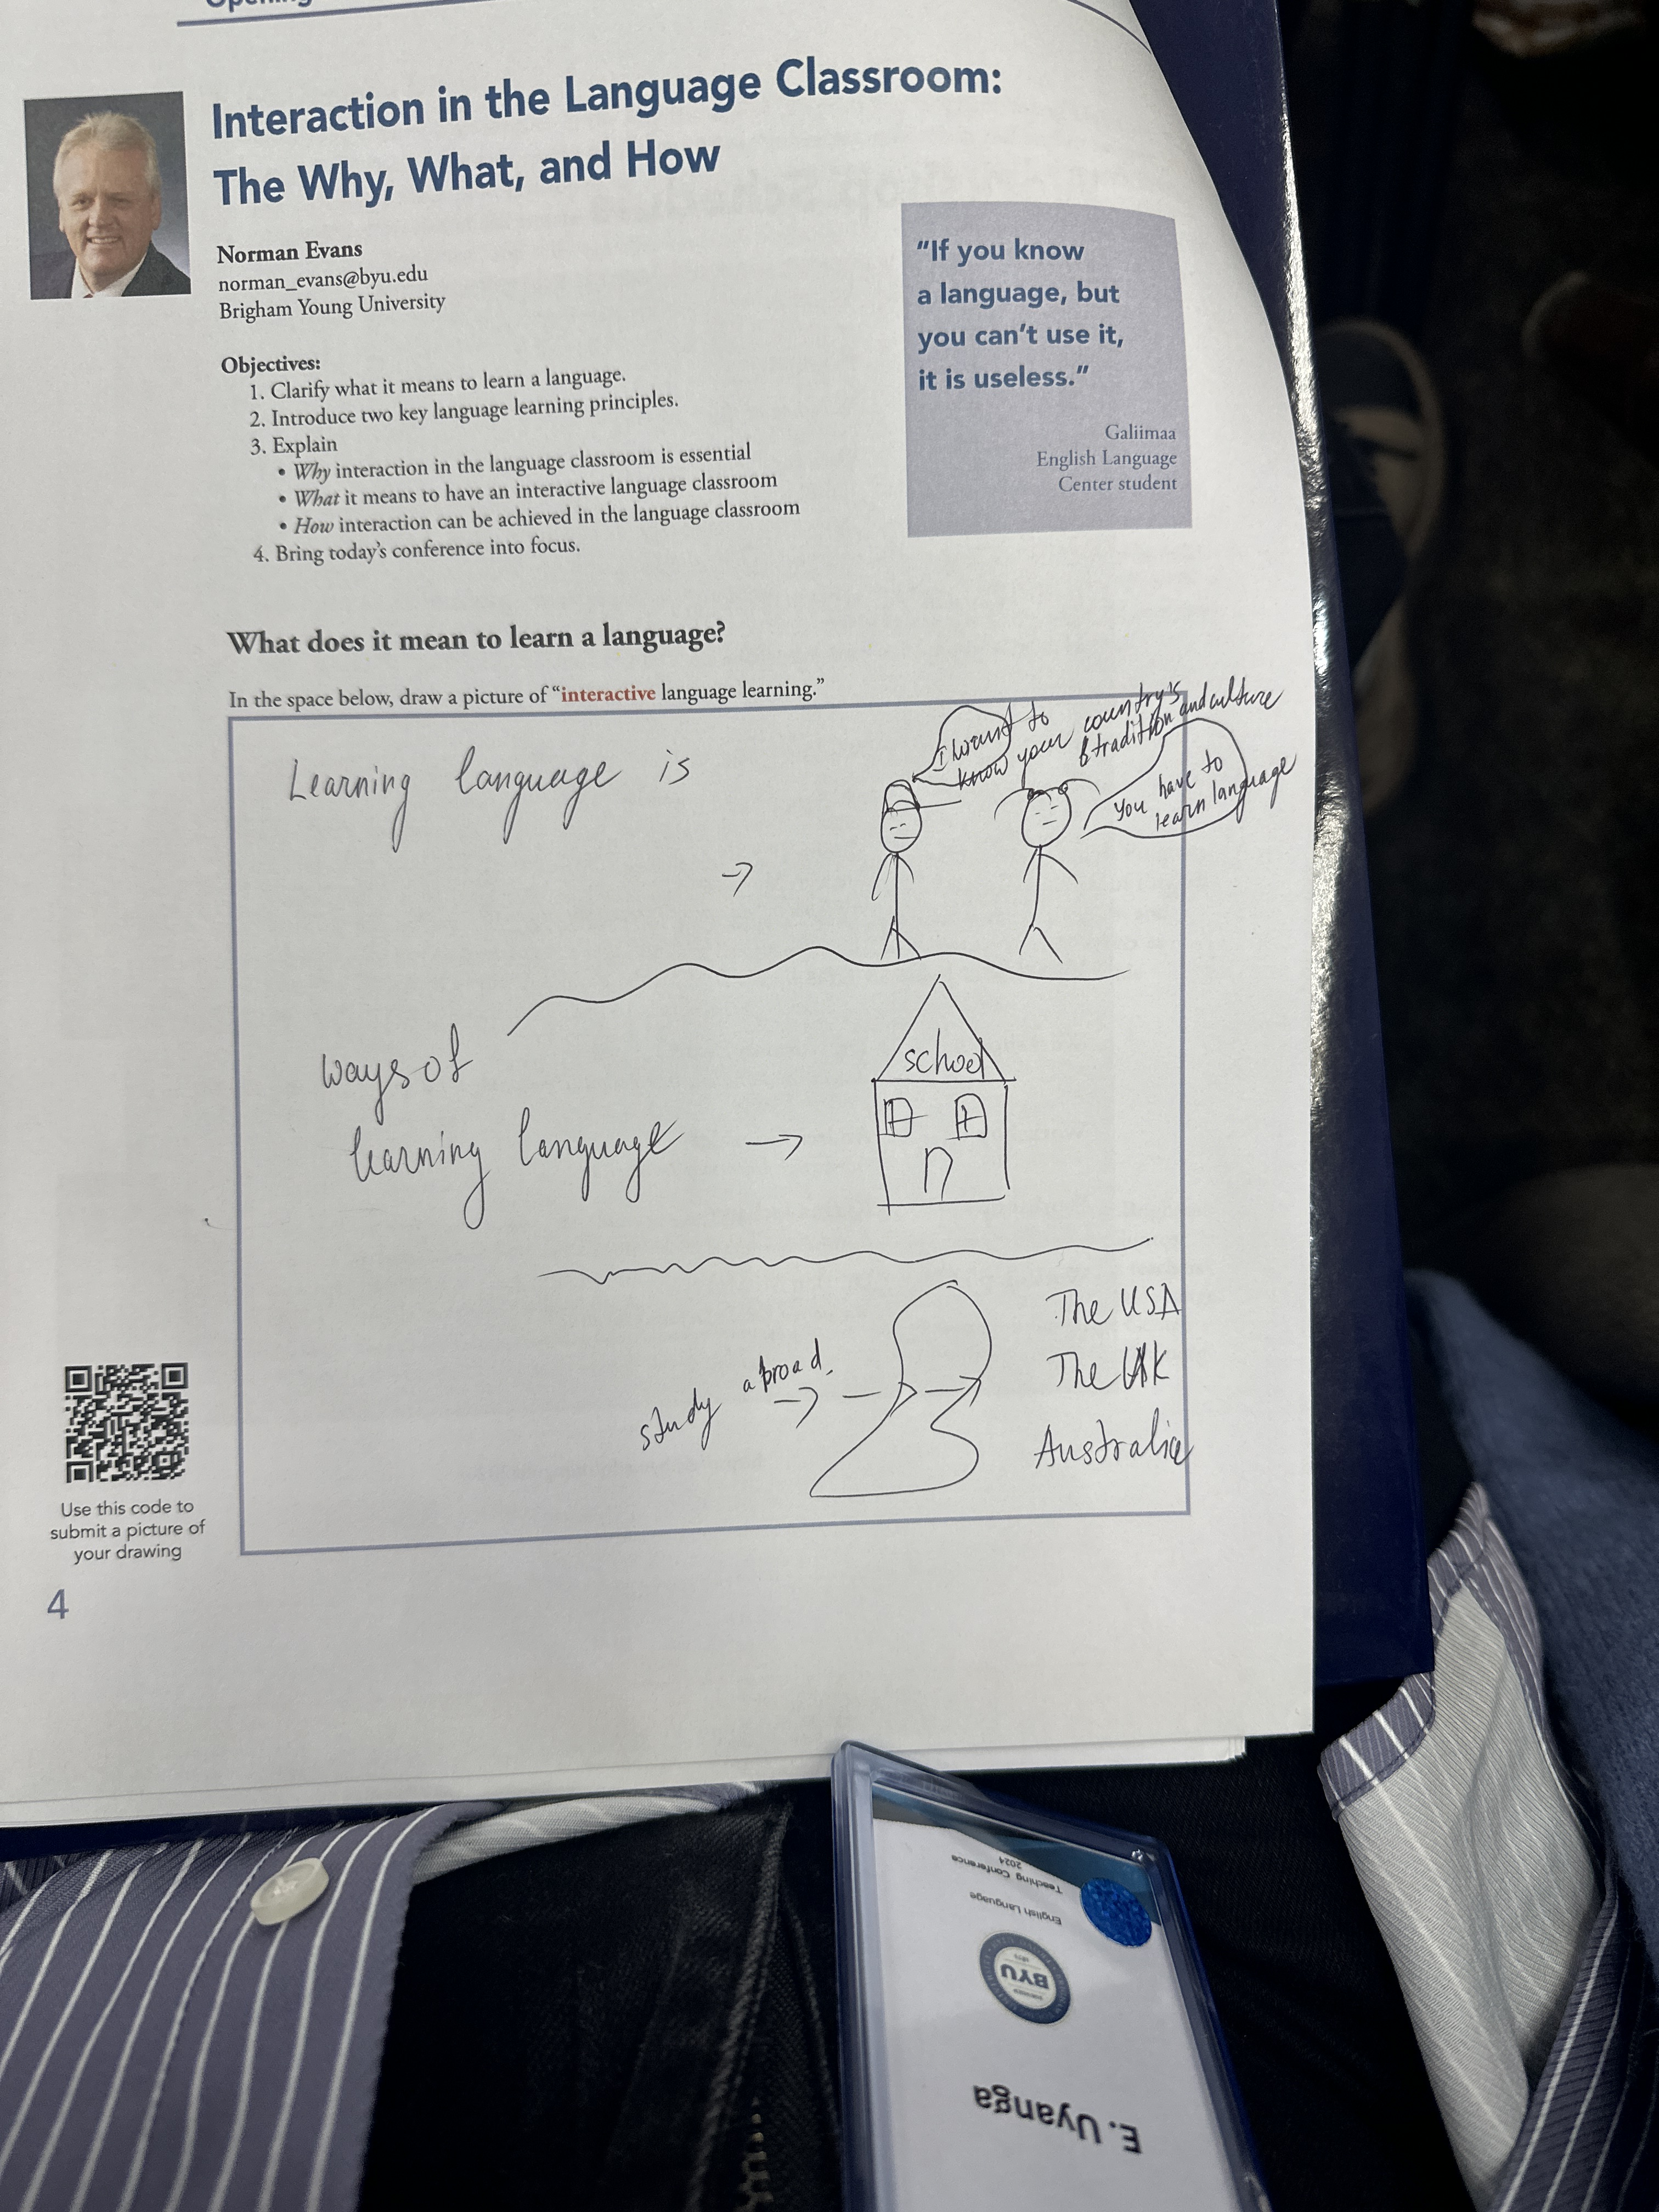 Interaction in the Language Classroom:
The Why, What, and How
Norman Evans
norman_evans@byu.edu
Brigham Young University
"If you know
a language, but
you can't use it,
it is useless."
Galiimaa
English Language
Center student
Objectives:
1. Clarify what it means to learn a language.
2. Introduce two key language learning principles.
3. Explain
• Why interaction in the language classroom is essential
• What it means to have an interactive language classroom
• How interaction can be achieved in the language classroom
4. Bring today's conference into focus.
What does it mean to learn a language?
In the space below, draw a picture of "interactive language learning."
Learning language is
→
I want to
know your country's
tradition and culture
You have to
learn language
ways of
learning language →
school
study abroad.
→
The USA
The UK
Australia
Use this code to
submit a picture of
your drawing
4
English Language
Teaching Conference
2024
BYU
E. Uyanga